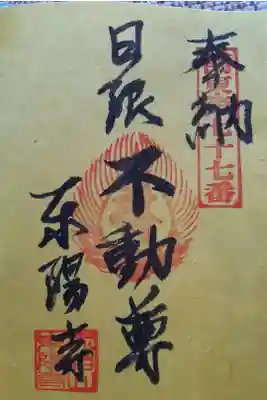 奉納
日限
不動尊
東陽寺
十七番